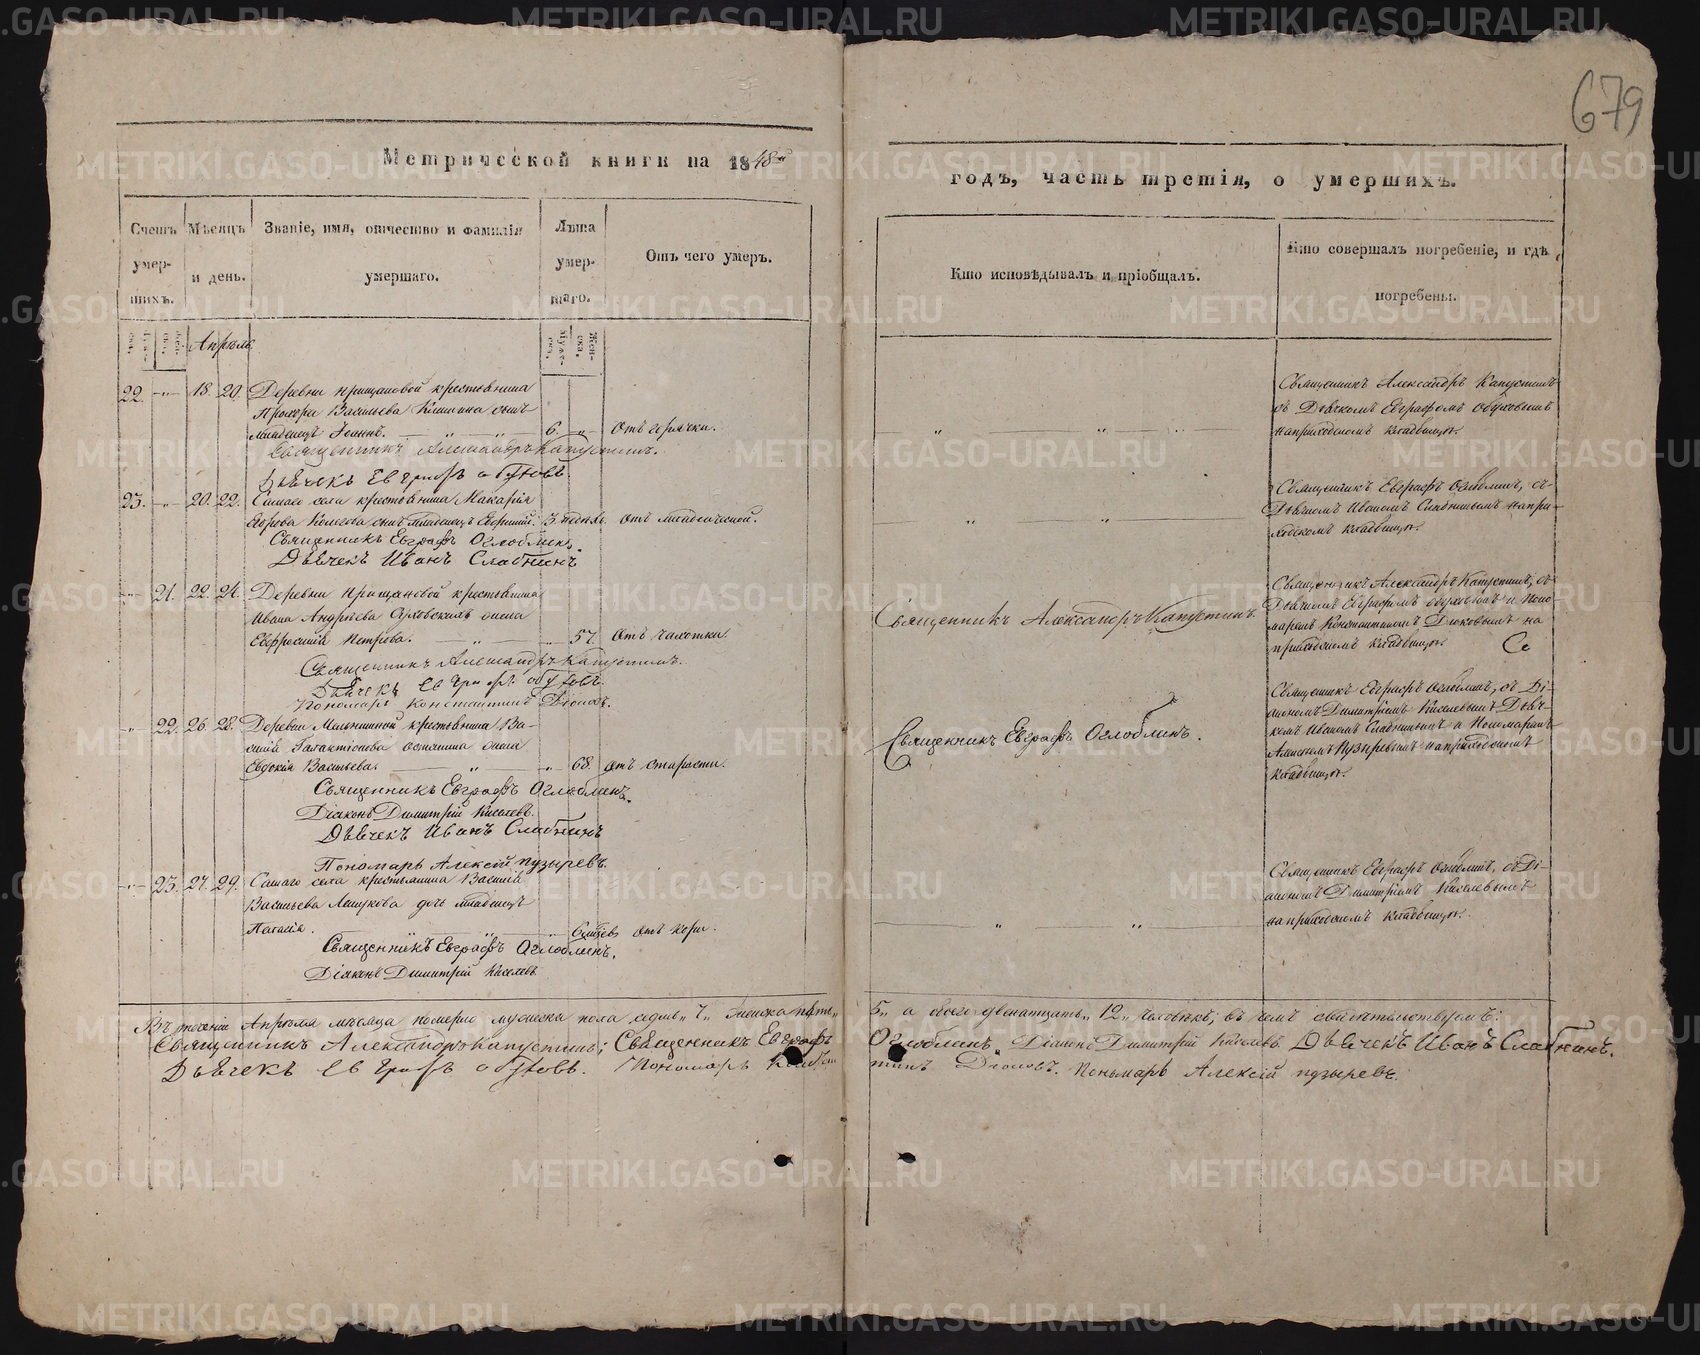 679
Метрической книги на 1848й
годъ, часть третія, о умершихъ.
Счетъ умер-шихъ.
Мѣсяцъ и день.
Званіе, имя, отчество и фамилія умершаго.
Лѣта умер-шаго.
Отъ чего умеръ.
Кто исповѣдывалъ и пріобщалъ.
Кто совершалъ погребеніе, и гдѣ погребены.
Апрѣль
22. 18. 20. Деревни крестьянина
Прохора Васильева сынъ
младенецъ Іоаннъ. 6. Отъ горячки.
Священникъ Александръ Капустинъ.
Дьячекъ Евграфъ Обуховъ.
Священникъ Александръ Капустинъ
съ Дьячкомъ Евграфомъ Обуховымъ
на приходскомъ кладбищѣ.
23. 20. 22. Самаго села крестьянина Макарія
Егорова сынъ младенецъ Евфимій. 3. недѣль. Отъ младенческой.
Священникъ Евграфъ Оглоблинъ
Дьячекъ Иванъ Слабнинъ
Священникъ Евграфъ Оглоблинъ, съ
Дьячкомъ Иваномъ Слабнинымъ на при-
ходскомъ кладбищѣ.
21. 22. 24. Деревни крестьянина
Ивана Андреева жена
Евфросинія Петрова. 57. Отъ чахотки.
Священникъ Александръ Капустинъ.
Дьячекъ Евграфъ Обуховъ.
Пономарь Константинъ
Священникъ Александръ Капустинъ.
Священникъ Александръ Капустинъ, съ
Дьячкомъ Евграфомъ Обуховымъ и Поно-
маремъ Константиномъ на
приходскомъ кладбищѣ.
22. 26. 28. Деревни крестьянина Ва-
силія Галактіонова жена
Евдокія Васильева. 68. Отъ старости.
Священникъ Евграфъ Оглоблинъ.
Діаконъ Димитрій Киселевъ.
Дьячекъ Иванъ Слабнинъ
Пономарь Алексій Пузыревъ.
Священникъ Евграфъ Оглоблинъ.
Священникъ Евграфъ Оглоблинъ, съ Ді-
акономъ Димитріемъ Киселевымъ Дьяч-
комъ Иваномъ Слабнинымъ и Пономаремъ
Алексіемъ Пузыревымъ на приходскомъ
кладбищѣ.
23. 27. 29. Самаго села крестьянина Василія
Васильева дочь младенецъ
Пелагія. Отъ кори.
Священникъ Евграфъ Оглоблинъ.
Діаконъ Димитрій Киселевъ
Священникъ Евграфъ Оглоблинъ, съ Ді-
акономъ Димитріемъ Киселевымъ
на приходскомъ кладбищѣ.
Въ теченіи Апрѣля мѣсяца померло мужеска пола седмь „7„ женска пять „
5„ а всего двенатцать „12„ человѣкъ, въ чемъ свидѣтельствуемъ:
Священникъ Александръ Капустинъ; Священникъ Евграфъ
Оглоблинъ, Діаконъ Димитрій Киселевъ Дьячекъ Иванъ Слабнинъ.
Дьячекъ Евграфъ Обуховъ. Пономарь Констан
тинъ Пономарь Алексій Пузыревъ.
METRIKI.GASO-URAL.RU